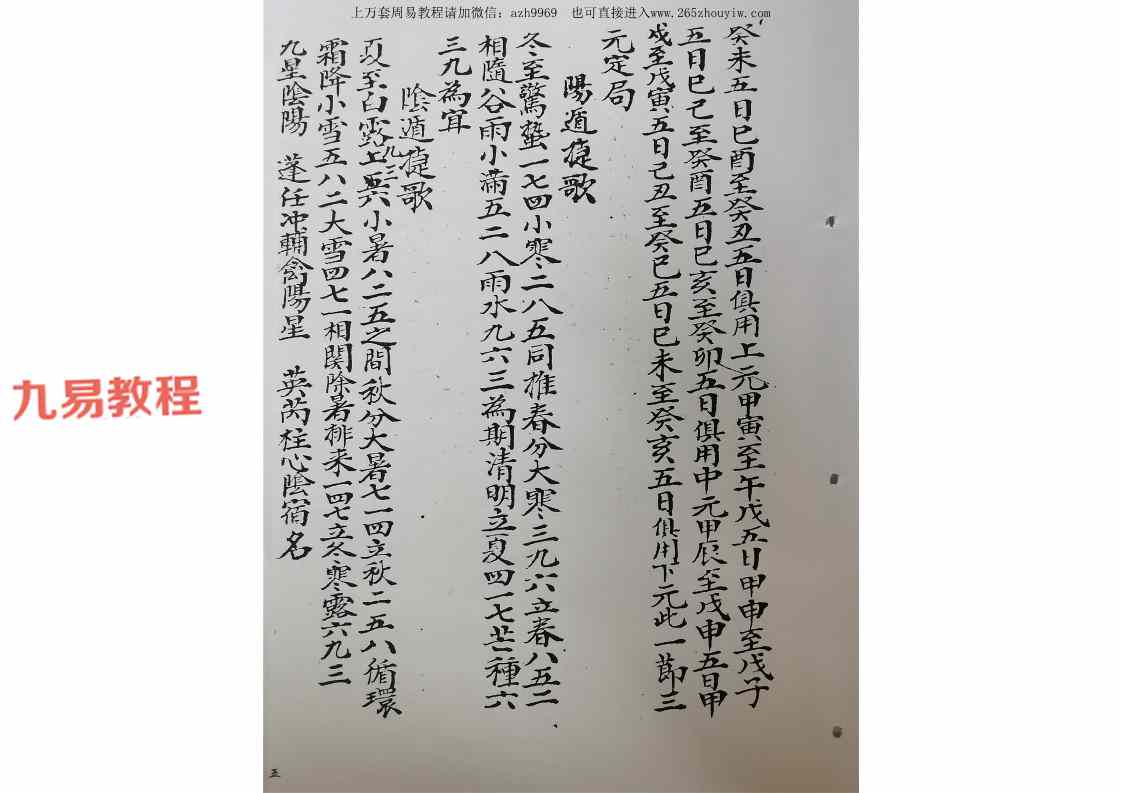 上万套周易教程请加微信：azh9969　也可直接进入www.265zhouyiw.com
癸未五日巳酉至癸丑五日俱用上元甲寅至午戊五日甲申至戊子
五日巳己至癸酉五日巳亥至癸卯五日俱用中元甲辰至戊申五日甲
戍至戊寅五日己丑至癸巳五日巳未至癸亥五日俱用下元此一節三
元定局
陽遁捷歌
冬至驚蟄一七四小寒二八五同推春分大寒三九六立春八五二
相隨谷雨小滿五二八雨水九六三為期清明立夏四一七芒種六
三九為宜
陰遁捷歌
夏至白露上九三六小暑八二五之間秋分大暑七一四立秋二五八循環
霜降小雪五八二大雪四七一相関除暑排来一四七立冬寒露六九三
九星陰陽　蓬任冲輔禽陽星　英芮柱心陰宿名
五
九易教程